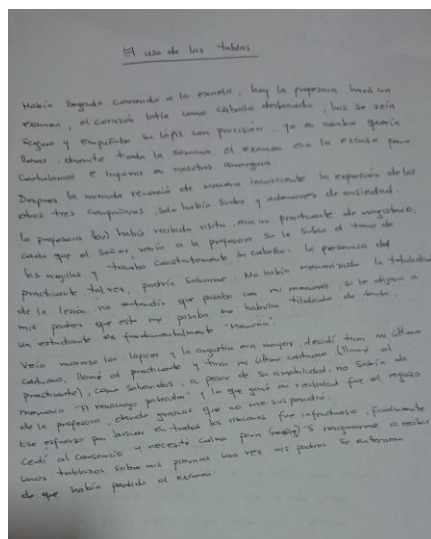 El uso de las tablas
Había llegado corriendo a la escuela, hoy la profesora hará un
examen, el corazón latía como caballo desbocado, luis se veía
seguro y empuñaba su lápiz con precisión, yo en cambio quería
llorar, durante toda la semana el examen era la excusa para
controlarnos e imprimir en nosotros amargura.
Despues la mirada recorrió de manera inconsciente la expresion de los
otros tres compañeros, solo había sudor y ademanes de ansiedad.
la profesora había recibido visita, era un practicante de magisterio,
cada que el señor venía a la profesora se le subia el tono de
las mejillas y tocaba constantemente su cabello. la presencia del
practicante tal vez, podría salvarme. No había memorizado la totalidad
de la lección no entendía que pasaba con mi memoria, si le dijera a
mis padres que esto me pasaba me habrían tildado de tonto,
un estudiante es fundamentalmente "Memoria".
Veía moverse los lápices y la angustia era mayor, decidí tirar mi último
cartucho, llamé al practicante y tiré mi último cartucho (llamé al
practicante), como sabandas, a pesar de su amabilidad, no sabía de
memoria "El renacuajo paseador" y lo que gané en realidad fue el regaño
de la profesora, dando gracias que no me suspendió.
Ese esfuerzo por buscar en todos los rincones fue infructuoso, finalmente
cedí al cansancio y necesité calma para resignarme a recibir
unos tablazos sobre mis piernas una vez mis padres se enteraran
de que había perdido el examen.